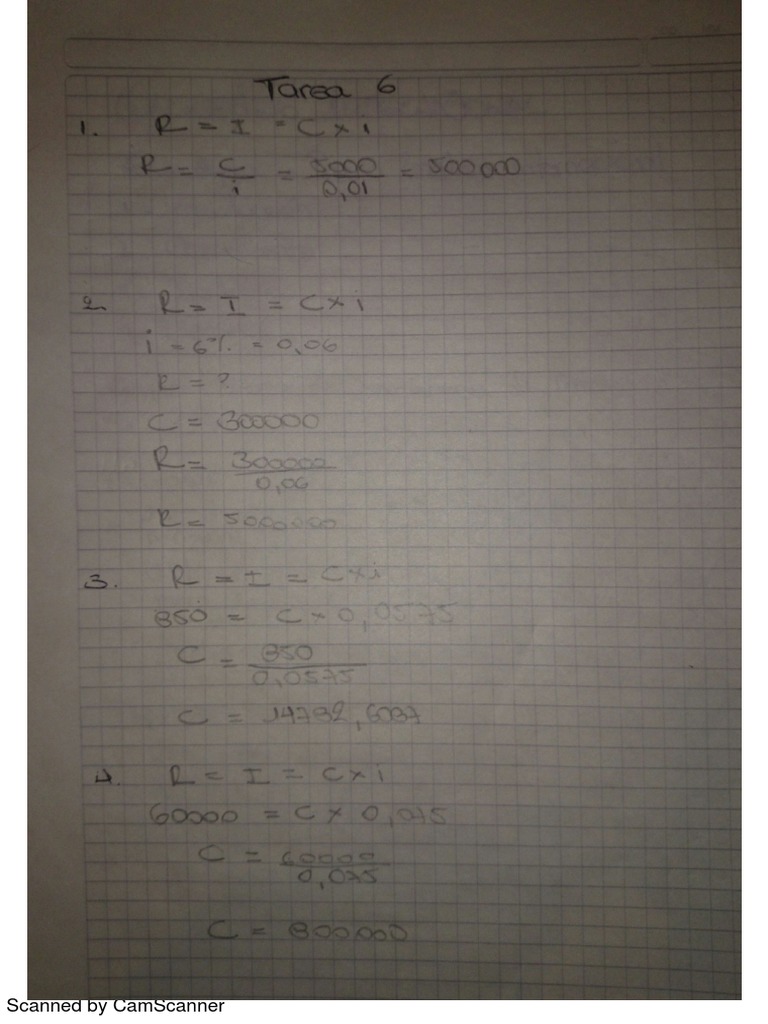 Tarea 6
1. R = I = C x i
R = C/i = 5000/0,01 = 500 000
2. R = I = C x i
i = 6% = 0,06
R = ?
C = 300000
R = 300000/0,06
R = 5000000
3. R = I = C x i
850 = C x 0,0575
C = 850/0,0575
C = 14782,6087
4. R = I = C x i
60000 = C x 0,075
C = 60000/0,075
C = 800000
Scanned by CamScanner